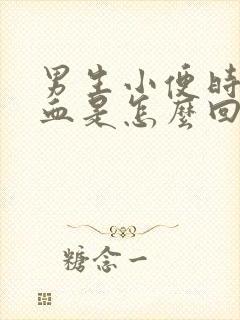 男生小便時
血是怎麼回
糖念一